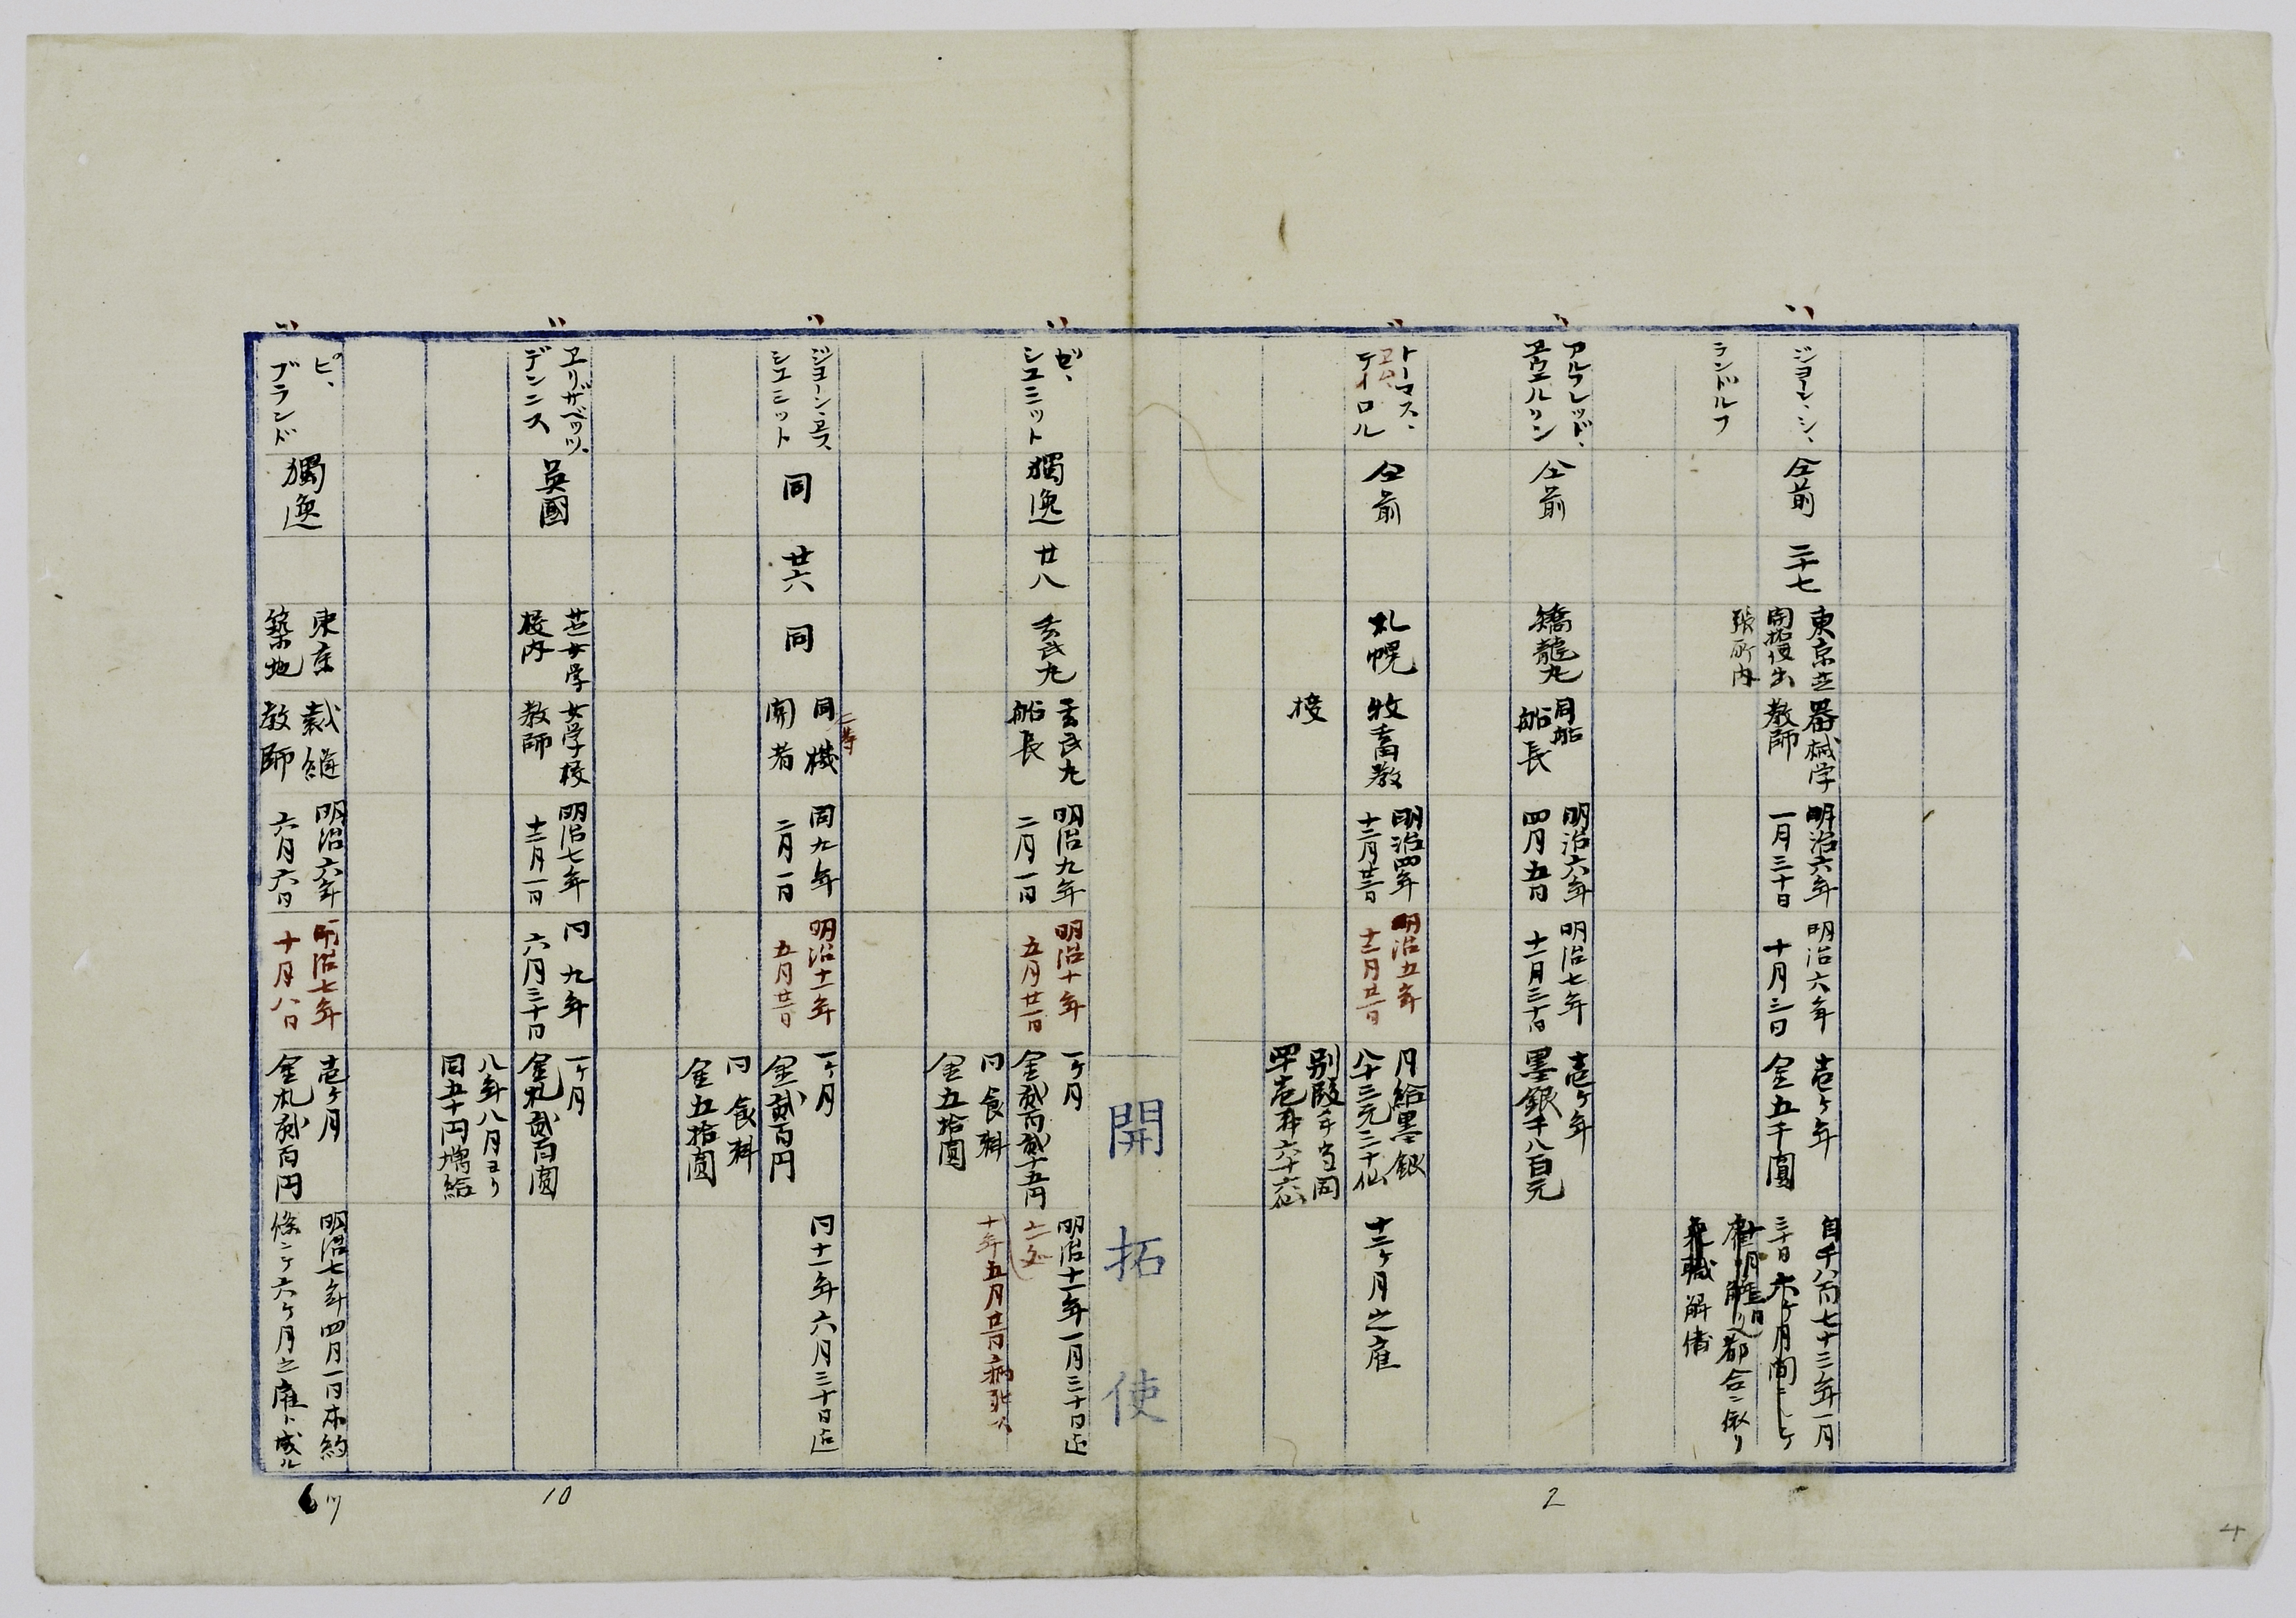 ジヨーン、シ、
ランドルフ
仝前
二十七
東京芝
開拓使出
張所内
器械学
教師
明治六年
一月三十日
明治六年
十月三日
壱ヶ年
金五千圓
自千八百七十三年一月
三十日六ヶ月間
都合ニ依リ
解傭
アルフレッド、
仝前
矯龍丸
同船
船長
明治六年
四月五日
明治七年
十一月三十日
壱ヶ年
墨銀千八百元
トーマス、
テイロル
仝前
札幌
牧畜教
授
明治四年
明治五年
月給墨銀
八十三元三十仙
別段手当同
四十壱弗六十六仙
十二ヶ月之雇
開拓使
ゼ、
シユミット
獨逸
廿八
玄武丸
玄武丸
船長
明治九年
二月一日
明治十年
五月廿一日
一ヶ月
金貳百貳十五円
同食料
金五拾圓
明治十一年一月三十日迄
十年五月廿一日病死ス
ジヨーン、ヱフ、
シユミット
同
廿六
同
二等
同機
関者
同九年
二月一日
明治十一年
一ヶ月
金貳百円
同食料
金五拾圓
同十一年六月三十日迄
ヱリザベツツ、
デンニス
英國
芝女学
校内
女学校
教師
明治七年
十二月一日
同九年
六月三十日
一ヶ月
金札貳百圓
八年八月ヨリ
同五十円増給
ピ、
ブランド
獨逸
東京
築地
裁縫
教師
明治六年
六月六日
明治七年
十月八日
壱ヶ月
金札貳百円
明治七年四月一日本約
條ニケ六ヶ月之雇ト成ル
2
10
4